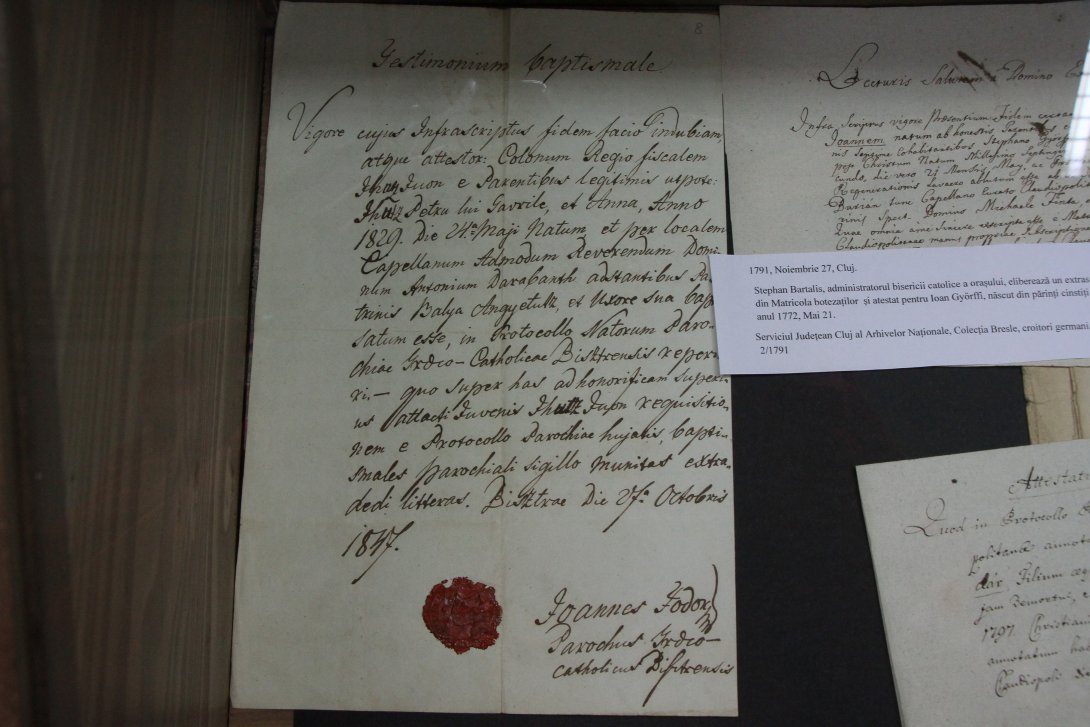 8
Testimonium Baptismale
Vigore cujus Infrascriptus fidem facio indubiam,
atque attestor: Colonum Regio fiscalem
Juon e Parentibus legitimis utpote:
Petru lui Gavrile, et Anna, Anno
1829. Die 24a Maji Natum, et per localem
Capellanum Admodum Reverendum Domi-
num Antonium Darabanth adstantibus Pa-
trinis Balya et Uxore sua Bap
satum esse, in Protocollo Natorum Paro-
chiae Graeco-Catholicae Bisztrensis reper
ri.— quo super has ad honorificam superi
us attacti Juvenis Juon requisitio-
nem e Protocollo Parochiae hujatis, Bapti-
smales parochiali sigillo munitas extra-
dedi litteras. Bisztrae Die 27a Octobris
1847.
Joannes Fodor
Parochus Graeco-
Catholicus Bisztrensis
Lecturis Salutem a Domino
Infra Scriptus vigore Praesentium Fidem
Joannem natum ab honestis Parentibus
Stephano Györf
post Christum Natum Millesimo Septing
cundo, die vero 21 Mensis May,
Regenerationis Lavacro ablutum esse ab
tunc Capellano Curato Claudiopoli
rinis Spect. Domino Michaele
Quae omnia
Claudiopolitanae manus propriae Subscription
1791, Noiembrie 27, Cluj.
Stephan Bartalis, administratorul bisericii catolice a orașului, eliberează un extras
din Matricola botezaților și atestat pentru Ioan Györffi, născut din părinți cinstiți
anul 1772, Mai 21.
Serviciul Județean Cluj al Arhivelor Naționale, Colecția Bresle, croitori germani
2/1791
Attestat
Quod in Protocollo
politanae annota
Filium
jam Demortui,
1797. Christian
annotatum
Claudiopoli